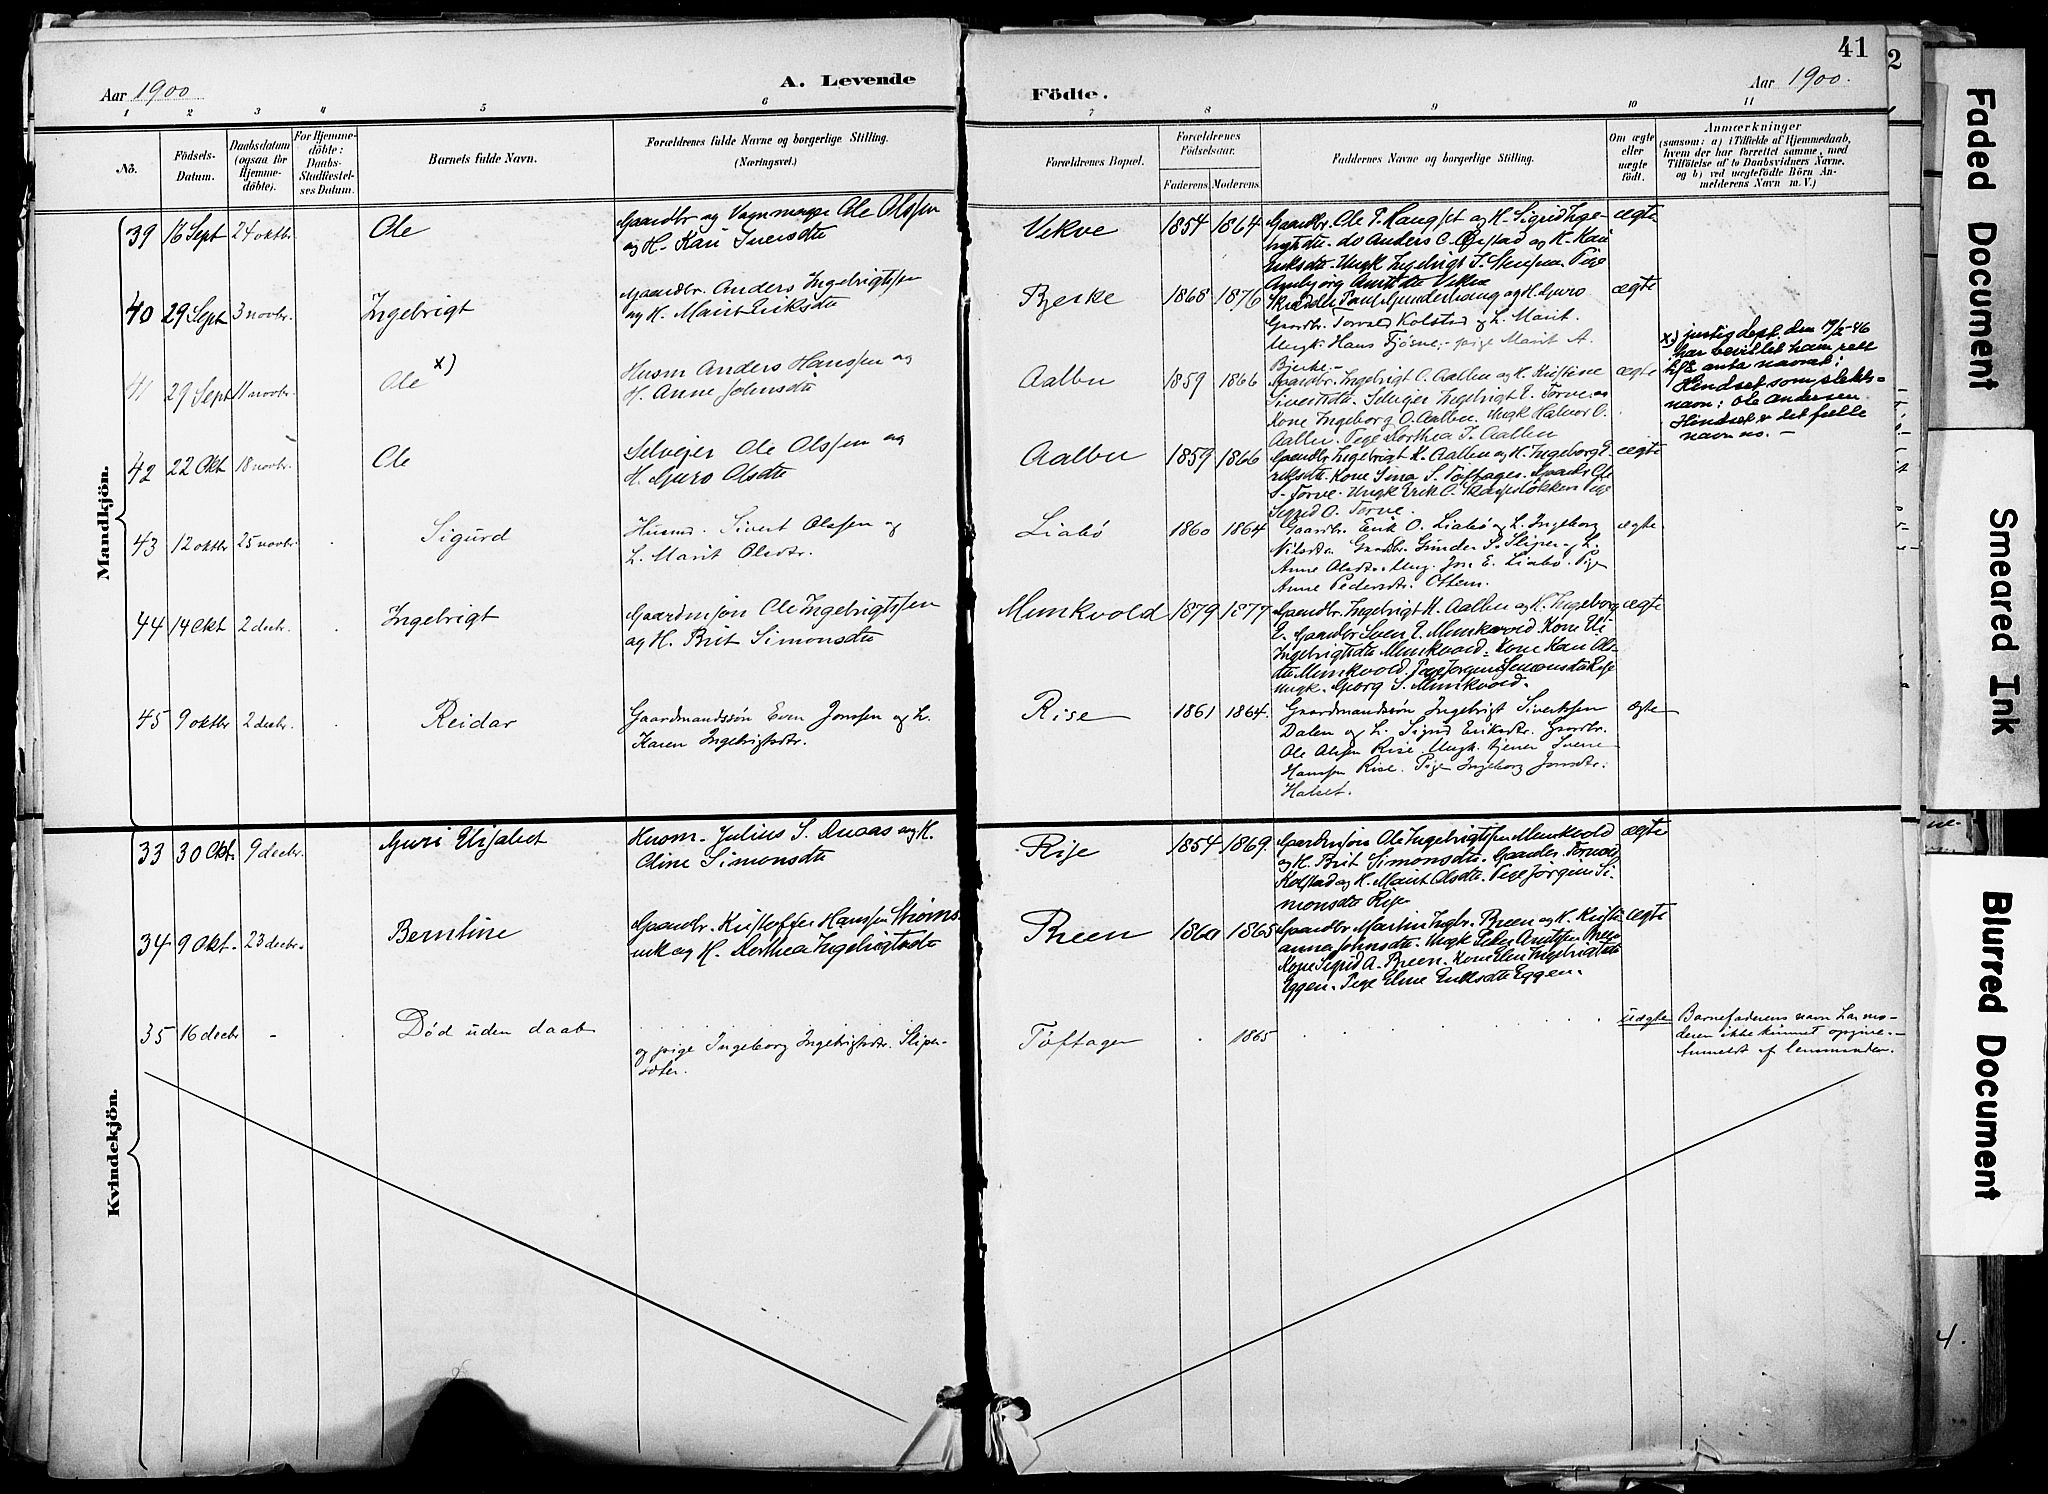 Aar 1900
A. Levende
Födte.
Aar 1900.
41
2
1 2 3 4 5 6 7 8 9 10 11
No.
Födsels-
Datum.
Daabsdatum
(ogsaa for
Hjemme-
döbte).
For Hjemme-
döbte:
Daabs-
Stadfæstel-
ses Datum.
Barnets fulde Navn.
Forældrenes fulde Navne og borgerlige Stilling.
(Næringsvei.)
Forældrenes Bopæl.
Forældrenes
Födselsaar.
Faderens. Moderens.
Faddernes Navne og borgerlige Stilling.
Om ægte
eller
uægte
födt.
Anmærkninger
(saasom: a) i Tilfælde af Hjemmedaab,
hvem der har forrettet samme, med
Tilföielse af to Daabsvidners Navne,
og b) ved uægtefödte Börn An-
melderens Navn m. V.)
Mandkjön.
39 16 Sept 24 oktbr. Ole
Gaardbr og Vognmager Ole Olssen
og H. Kari Iversdtr
Vekve 1854 1864
Gaardbr. Ole P. Haugset og H. Sigrid Inge-
brigtsdtr. do Anders O. og H. Kari
Eriksdtr. Ungk Ingebrigt Pige
Vekve
ægte
40 29 Sept 3 novbr. Ingebrigt
Gaardbr. Anders Ingebrigtssen
og H. Marit Eriksdtr
Bjerke 1868 1876
og H. Guro
Gaardbr. Torvald Kolstad og h. Marit.
Ungk. Hans Fjösne, pige Marit A.
Bjerke.
ægte
41 29 Sept 11 novbr. Ole x)
Husm Anders Hanssen og
H. Anne Johnsdtr
Aalbu 1859 1866
Gaardbr. Ingebrigt O. Aalbu og H. Kristine
Sivertsdtr. Selveier Ingebrigt E. Torve og
Kone Ingeborg O. Aalbu. Ungk Halvor O.
Aalbu. Pige Dorthea I. Aalbu
ægte
x) justisdept. den 19/2-46
har bevilget ham rett
til å anta navnet:
Hindset som slekts-
navn: Ole Andersen
Hindset er det fulle
navn nu. –
42 22 Okt 18 novbr. Ole
Selvejer Ole Olssen og
H. Guro Olsdtr
Aalbu 1859 1866
Gaardbr. Ingebrigt K. Aalbu og H. Ingeborg E-
riksdtr. Kone Sina S. Töftager. Gaardbr Ole
S. Torve. Ungk Erik O. Pige
Sigrid O. Torve.
ægte
43 12 oktbr 25 novbr. Sigurd
Husmd. Sivert Olssen og
h. Marit Olsdtr.
Liabö 1860 1864
Gaardbr. Erik O. Liabö og h. Ingeborg
Nilsdtr. Gaardbr. Gunder S. Sliper og h.
Anne Olsdtr. Ung. Jon E. Liabö. Pige
Anne Pedersdtr. Ottem.
ægte
44 14 Okt 2 decbr. Ingebrigt
Gaardmsön Ole Ingebrigtssen
og H. Brit Simonsdtr
Munkvold 1879 1877
Gaardbr. Ingebrigt K. Aalbu og H. Ingeborg
E. Gaardbr Sven E. Munkvold. Kone
Ingebrigtsdtr Munkvold. Kone Kari Ols-
dtr Munkvold. Pige Jörgine Simonsdtr Rise
Ungk. Georg S. Munkvold.
ægte
45 9 oktbr 2 decbr. Reidar
Gaardmandssön Even Jonssen og h.
Karen Ingebrigtsdtr.
Rise 1861 1864.
Gaardmandssön Ingebrigt Sivertssen
Dalen og h. Sigrid Eriksdtr. Gaardbr.
Ole Olssen Rise. Ungk. tjener Svend
Hanssen Rise. Pige Ingeborg Jonsdtr.
Halset.
ægte
Kvindekjön.
33 30 Okt. 9 decbr. Guri Elisabet
Husm. Julius S. Duaas og H.
Oline Simonsdtr
Rise 1854 1869.
Gaardmsön Ole Ingebrigtssen Munkvold
og H. Brit Simonsdtr. Gaardbr. Torvald
Kolstad og H. Marit Olsdtr. Pige Jörgine Si-
monsdtr Rise
ægte
34 9 Okt. 23 decbr. Berntine
Gaardbr. Kristoffer Hanssen Ströms-
og H. Dorthea Ingebrigtsdtr
Breen 1860 1865
Gaardbr Martin Ingbr. Breen og H. Kristi-
anna Johnsdtr. Ungk Peder Arntssen Breen
Kone Sigrid A. Breen. Kone Elen Ingebrigtsdtr
Eggen. Pige Eline Eriksdtr Eggen.
ægte
35 16 decbr - Död uden daab
og pige Ingeborg Ingebrigtsdtr. Sliper-
sæter.
Töftager 1865
uægte
Barnefaderens navn har mo-
deren ikke kunnet opgive. –
Anmeldt af lensmanden.
4.
Faded Document
Smeared Ink
Blurred Document